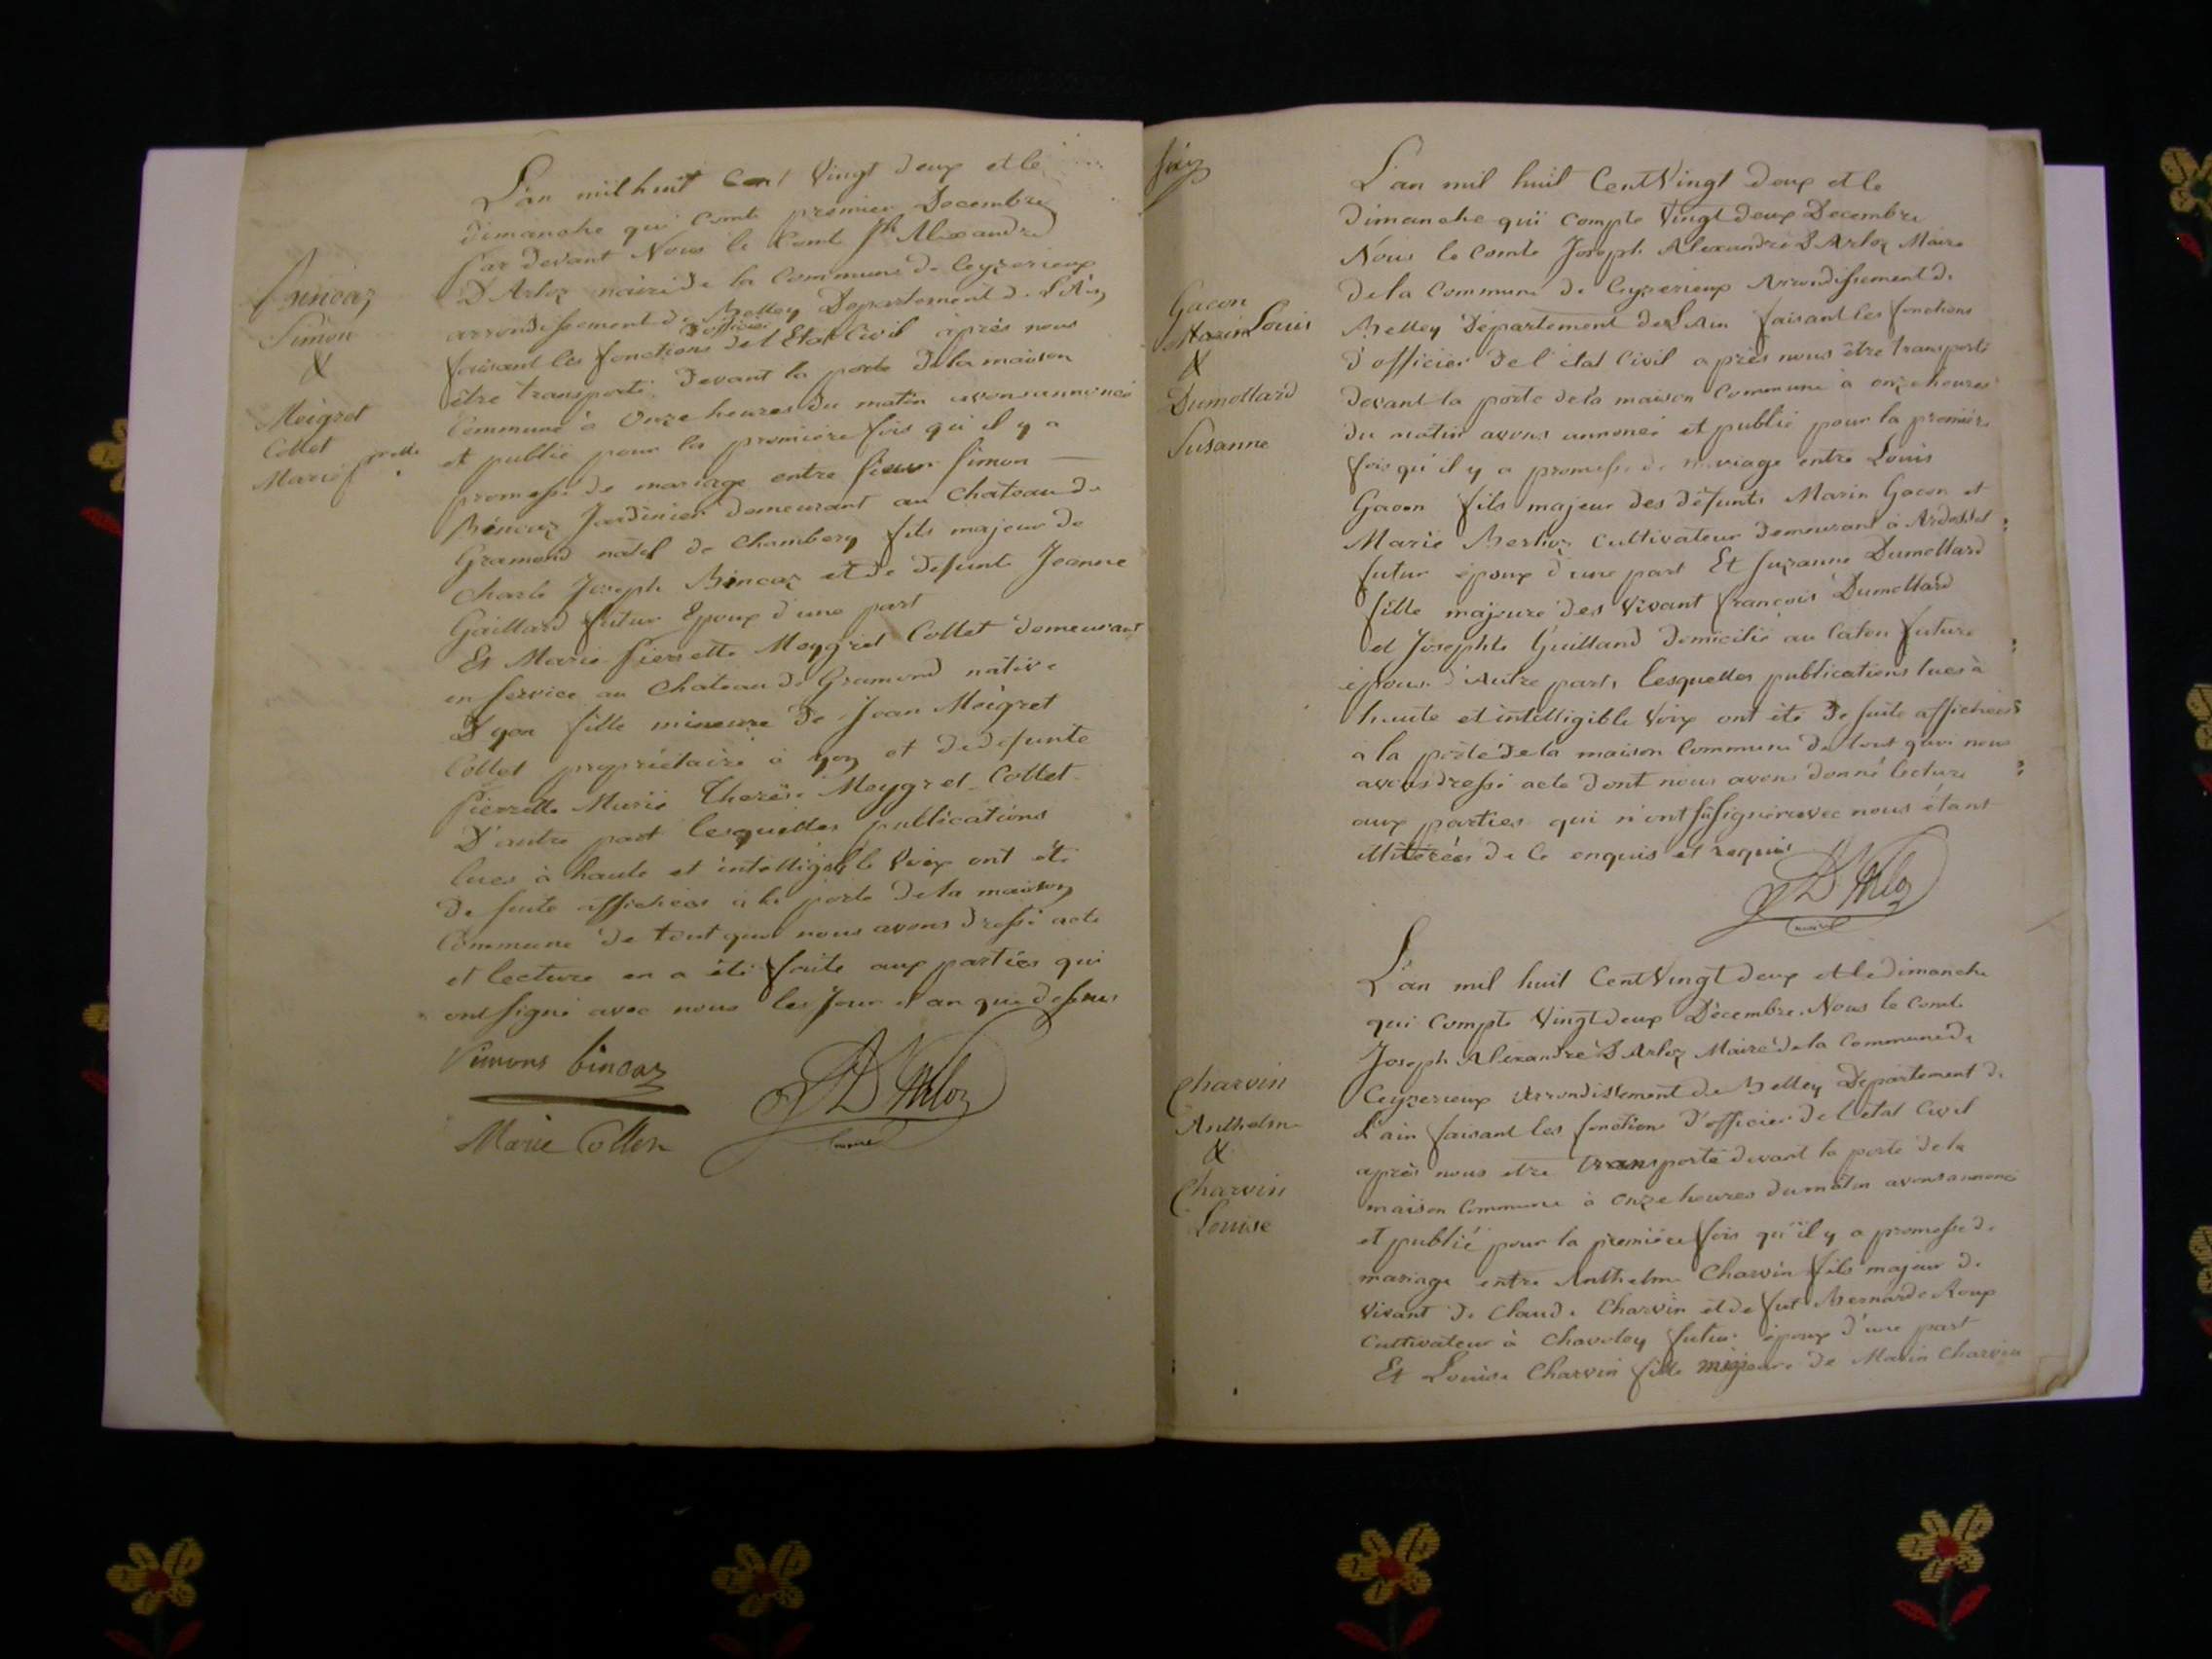 L'an mil huit Cent Vingt deux et le
dimanche qui comte premier Decembre
Par devant Nous le Comte Jh Alexandre
D'Arloz maire de la Commune de Ceyzerieux
arrondissement de Belley Departement de L'Ain
faisant les fonctions d'officier de l'Etat Civil après nous
être transporté devant la porte de la maison
Commune à Onze heures du matin avons annoncé
et publié pour la premiere fois qu'il y a
promesse de mariage entre sieur Simon
Bincaz Jardinier demeurant au Chateau de
Gramond natif de Chambery fils majeur de
Charle Joseph Bincaz et de defunte Jeanne
Gaillard futur Epoux d'une part
Et Marie Pierrette Meygret Collet demeurant
en service au Chateau de Gramond native
D'yon fille mineure de Jean Meigret
Collet propriétaire à yon et de defunte
Pierrette Marie Therèse Meygret Collet
D'autre part lesquelles publications
lues à haute et intelligible Voix ont été
de suite affichées à la porte de la maison
Commune de tout quoi nous avons dressé acte
et lecture en a été faite aux parties qui
ont signé avec nous les Jour et an que dessus
Simon
&
Meigret
Collet
Marie prette
Simons bincaz
D'Arloz
maire
Marie Collet
Gacon
Marin Louis
&
Dumollard
Susanne
L'an mil huit Cent Vingt deux et le
dimanche qui compte Vingt deux Decembre
Nous le Comte Joseph Alexandre D'Arloz Maire
de la Commune de Ceyzerieux Arrondissement de
Belley Département de L'Ain faisant les fonctions
d'officier de l'état Civil après nous être transporté
devant la porte de la maison Commune à onze heures
du matin avons annoncé et publié pour la première
fois qu'il y a promesse de mariage entre Louis
Gacon fils majeur des défunts Marin Gacon et
Marie Berlioz Cultivateur demeurant à Ardosset
futur époux d'une part Et Suzanne Dumollard
fille majeure des Vivant françois Dumollard
et Josephte Guilland domicilié au Caton future
épouse d'Autre part, lesquelles publications lues à
haute et intelligible Voix ont été de suite affichées
à la porte de la maison Commune de tout quoi nous
avons dressé acte dont nous avons donné lecture
aux parties qui n'ont su signer avec nous étant
illiterées de ce enquis et requis
D'Arloz
maire
Charvin
Anthelme
&
Charvin
Louise
L'an mil huit Cent Vingt deux et le dimanche
qui Compte Vingt deux Décembre. Nous le Comte
Joseph Alexandre D'Arloz Maire de la Commune de
Ceyzerieux Arrondissement de Belley Departement de
L'ain faisant les fonctions d'officier de l'état Civil
après nous etre transporté devant la porte de la
maison Commune à onze heures du matin avons annoncé
et publié pour la première fois qu'il y a promesse de
mariage entre Anthelme Charvin fils majeur de
Vivant de Claude Charvin et de fut Bernarde Roux
Cultivateur à Chavoley futur époux d'une part
Et Louise Charvin fille majeure de Marin Charvin